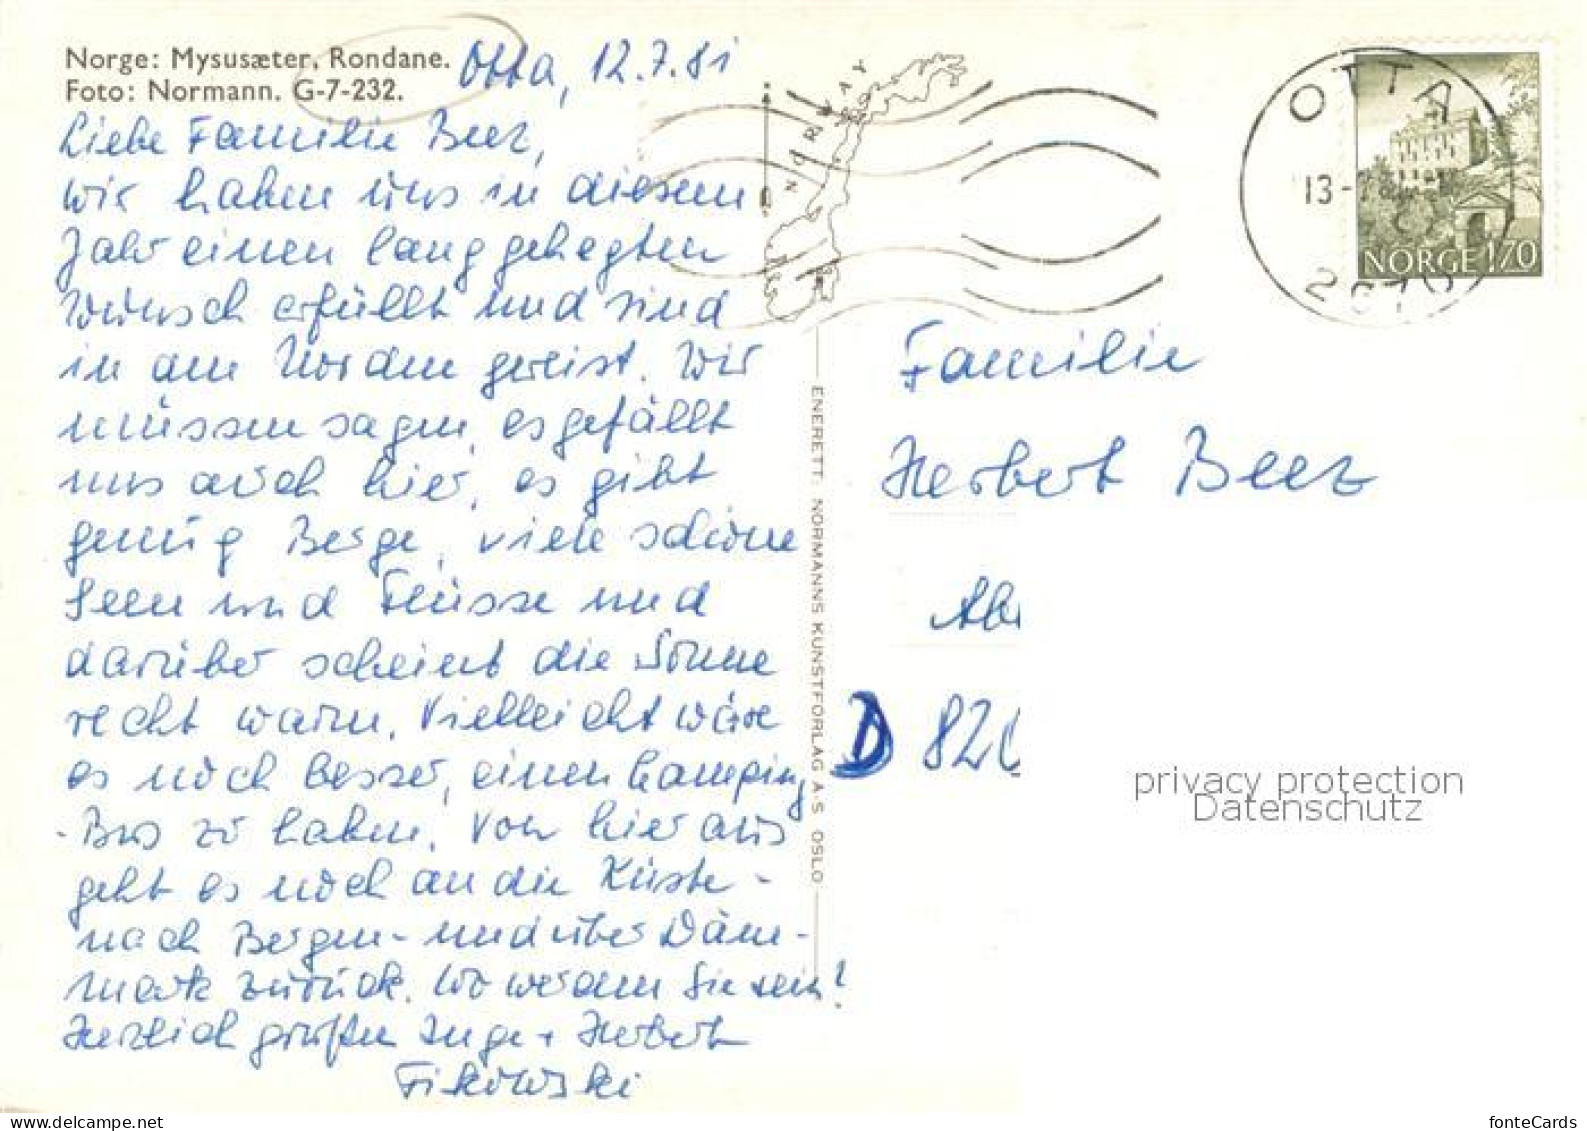 Norge: Mysusæter, Rondane.
Foto: Normann. G-7-232.
Otta, 12.7.81
Liebe Familie Beez,
wir haben uns in diesem
Jahr einen lang gehegten
Wunsch erfüllt und sind
in den Norden gereist. Wir
müssen sagen, es gefällt
uns auch hier, es gibt
genug Berge, viele schöne
Seen und Flüsse und
darüber scheint die Sonne
recht warm. Vielleicht wäre
es noch besser, einen Camping
-Bus zu haben. Von hier aus
geht es noch an die Küste -
nach Bergen - und über Däne-
mark zurück. Wo werden Sie sein?
Herzlich grüßen Inge + Herbert
Fikowski
NORWAY
OTTA
13-
2670
NORGE 170
ENERETT: NORMANNS KUNSTFORLAG A-S OSLO
Familie
Herbert Beez
D 820
privacy protection
Datenschutz
fonteCards